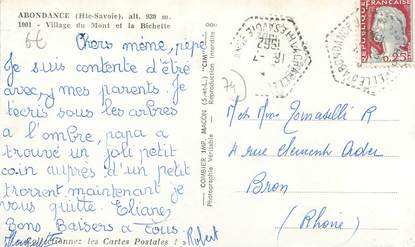 ABONDANCE (Hte-Savoie), alt. 930 m.
1001 - Village du Mont et la Bichette
Chers mémé, pépé
Je suis contente d'être
avec, mes parents. Je
t'ecris sous les arbres
a l'ombre, papa a
trouvé un joli petit
coin auprès d'un petit
torrent maintenant je
vous quitte. Eliane
Bons Baisers a tous
Robert
les Cartes Postales !
COMBIER IMP. MACON (S.-et-L.) "CIM"
Photographie Véritable - Reproduction Interdite
74
16 - 7
1962
REPUBLIQUE FRANCAISE
0,25
Tomaselli R
4 rue Clements Ader
Bron
(Rhône)